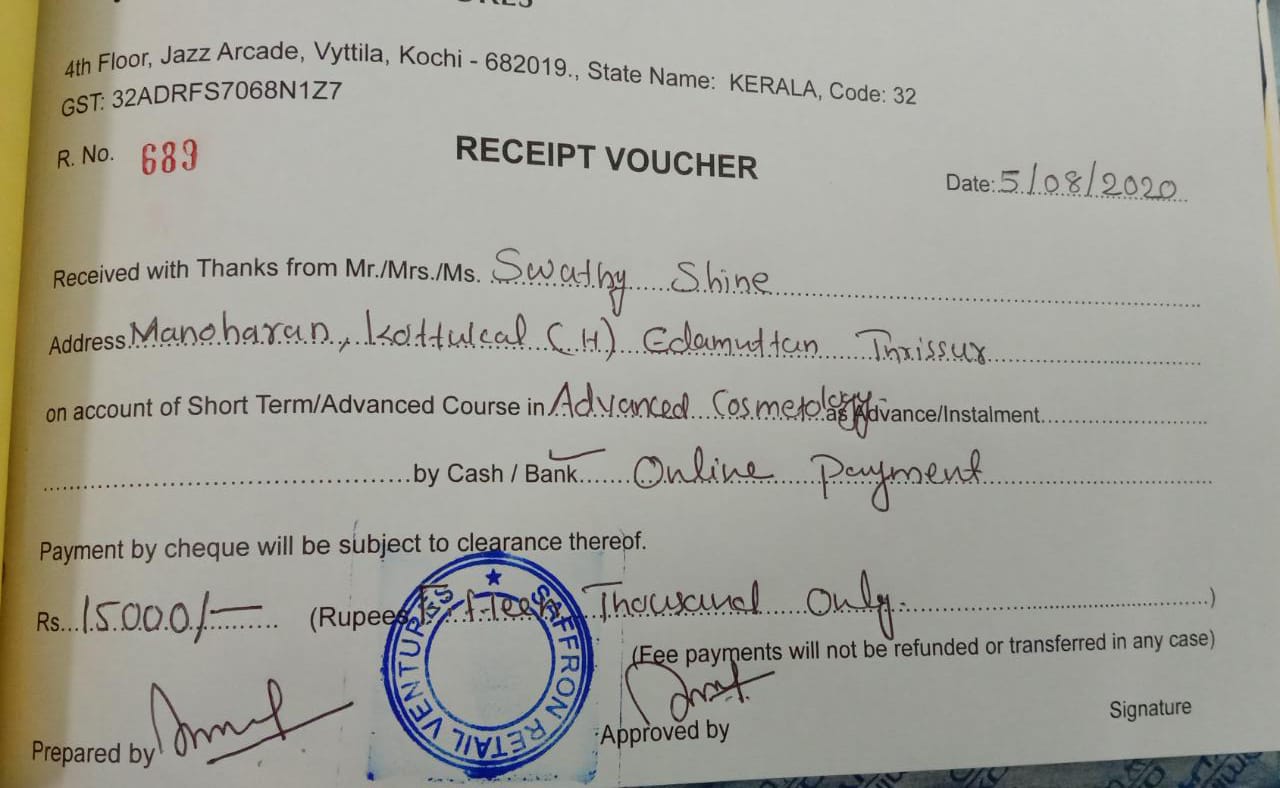 4th Floor, Jazz Arcade, Vyttila, Kochi - 682019., State Name: KERALA, Code: 32
GST: 32ADRFS7068N1Z7
R. No. 689
RECEIPT VOUCHER
Date: 5/08/2020
Received with Thanks from Mr./Mrs./Ms. Swathy Shine
Address Manoharan, Kottulcal (H) Edamuttan Thrissur
on account of Short Term/Advanced Course in Advanced Cosmetology as Advance/Instalment
by Cash / Bank Online Payment
Payment by cheque will be subject to clearance thereof.
Rs. 15000/- (Rupees Fifteen Thousand Only.)
SAFFRON RETAIL VENTURES
(Fee payments will not be refunded or transferred in any case)
Prepared by
Approved by
Signature